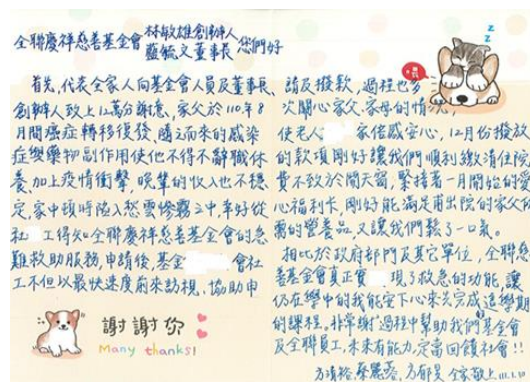 全聯慶祥慈善基金會 林敏雄創辦人
藍毓文董事長 您們好
首先,代表全家人向基金會人員及董事長、
創辦人致上12萬分謝意,家父於110年8
月間癌症轉移復發,隨之而來的感染
症與藥物副作用使他不得不辭職休
養,加上疫情衝擊,晚輩的收入也不穩
定,家中頓時陷入愁雲慘霧之中,幸好從
社 工得知全聯慶祥慈善基金會的急
難救助服務,申請後,基金 會社
工不但以最快速度前來訪視、協助申
謝謝你
Many thanks!
請及撥款,過程也多
次關心家父、家母的情況,
使老人 家倍感安心,12月份撥放
的款項剛好讓我們順利繳清住院
費不致於開天窗,緊接著一月開始的愛
心福利卡,剛好能滿足甫出院的家父
需的營養品又讓我們鬆了一口氣。
相比於政府部門及其它單位,全聯
善基金會真正實 現了救急的功能,讓
仍在學中的我能安下心來去完成進學
的課程。非常謝 過程中幫助我們基金會
及全聯員工,未來有能力定當回饋社會!!
全家敬上